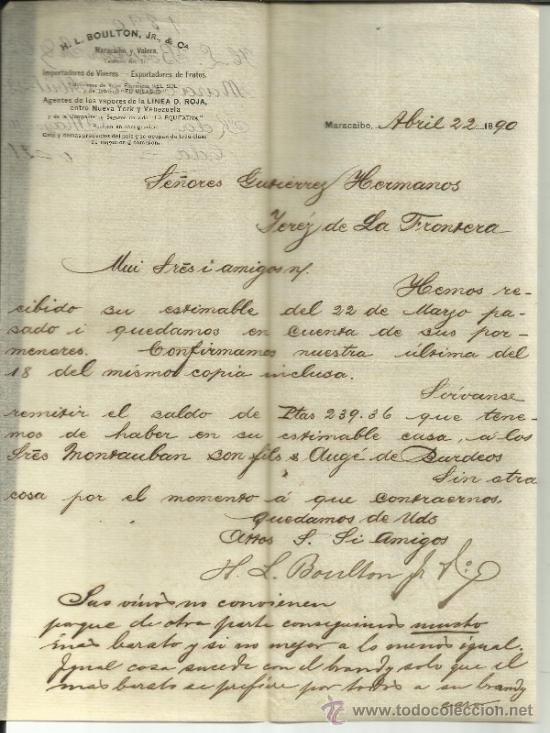 H. L. BOULTON, JR., & Ca.
Maracaibo y Valera.
Importadores de Víveres — Exportadores de Frutos.
Agentes de los vapores de la LINEA D. ROJA,
entre Nueva York y Venezuela
Maracaibo, Abril 22 1890
Señores Gutiérrez Hermanos
Jeréz de La Frontera
Mui Srés i amigos n/.
Hemos re-
cibido su estimable del 22 de Marzo pa-
sado i quedamos en cuenta de sus por-
menores. Confirmamos nuestra última del
18 del mismo copia inclusa.
Sírvanse
remitir el saldo de Ptas 239.36 que tene-
mos de haber en su estimable casa, a los
Srés Montauban son fils & Augé de Burdeos
Sin otra
cosa por el momento á que contraernos
quedamos de Uds
Attos S. S i Amigos
H. L. Boulton Jr & Co
Sus vinos no convienen
porque de otra parte conseguimos mucho
mas barato y si no mejor a lo menos igual.
Igual cosa sucede con el brandy solo que el
mas barato se prefiere por todos a su brandy
caro
todocoleccion
www.todocoleccion.net